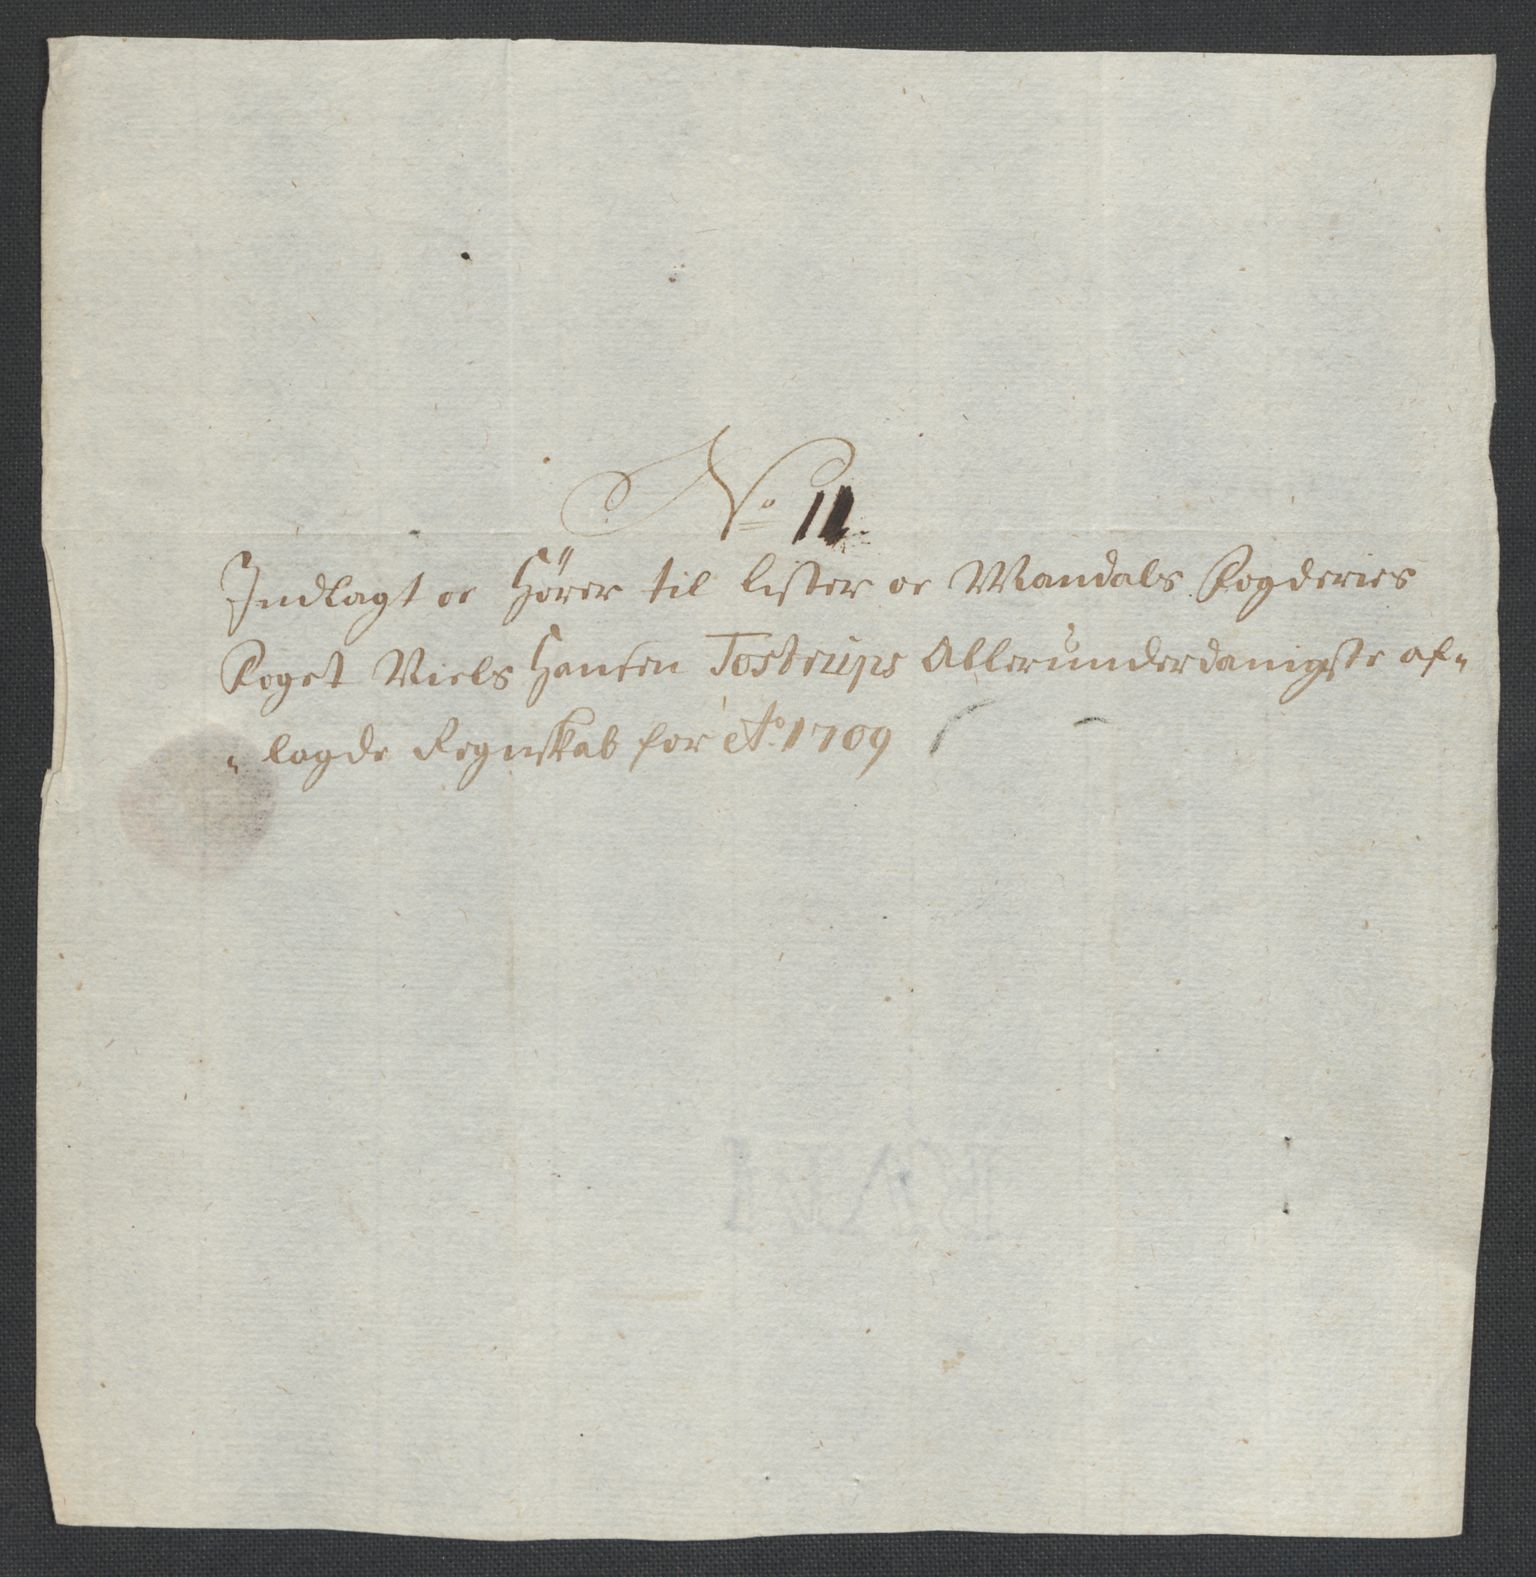 No 11
Indlagt oc Hører til Lister oc Mandals Fogderies
Foget Niels Hansen Tostrups Allerunderdanigste af-
lagde Regnskab for Ao. 1709